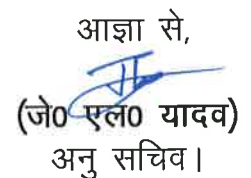 आज्ञा से,
(जे0 एल0 यादव)
अनु सचिव।